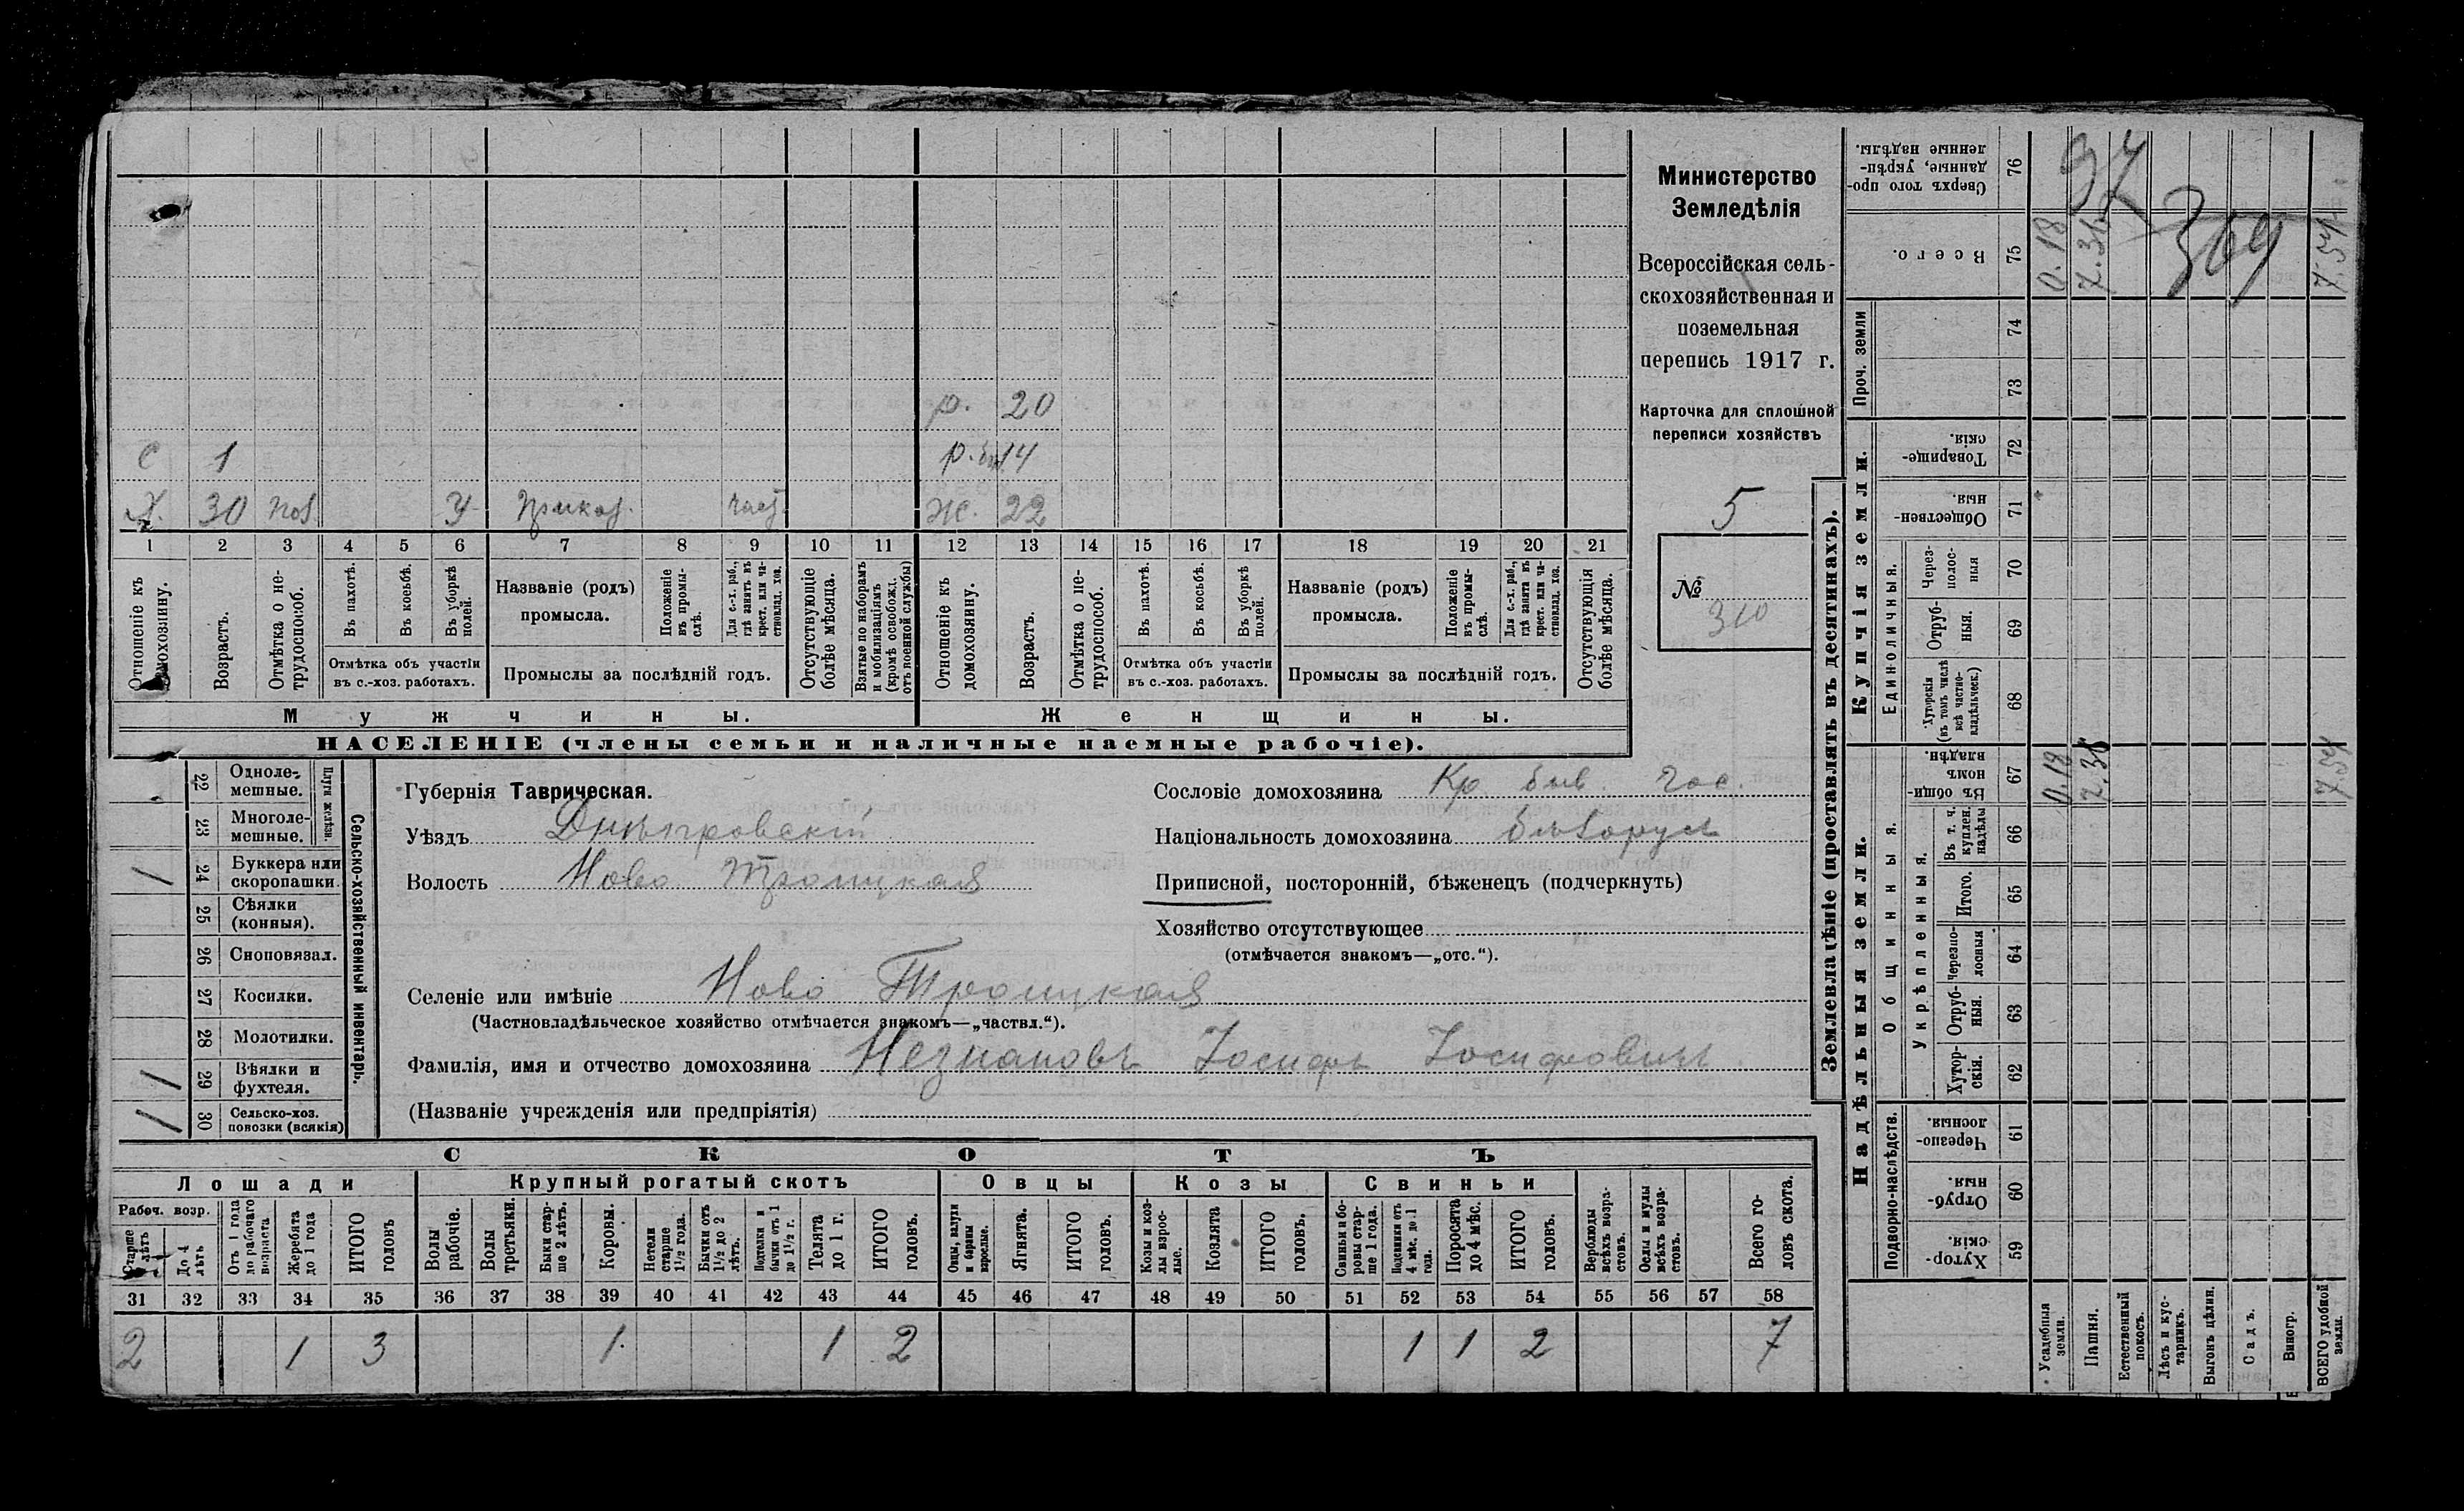 Министерство
Земледѣлія
Всероссійская сель-
скохозяйственная и
поземельная
перепись 1917 г.
Карточка для сплошной
переписи хозяйствъ
5
№
310
р. 20
С 1
р. 14
Х. 30 У ж. 22
1 2 3 4 5 6 7 8 9 10 11 12 13 14 15 16 17 18 19 20 21
Отношеніе къ домохозяину.
Возрастъ.
Отмѣтка о не-трудоспособ.
Въ пахотѣ.
Въ косьбѣ.
Въ уборкѣ полей.
Отмѣтка объ участіи
въ с.-хоз. работахъ.
Названіе (родъ)
промысла.
Положеніе въ промы-слѣ.
Для с.-х. раб., гдѣ занятъ въ крест. или ча-стновлад. хоз.
Промыслы за послѣдній годъ.
Отсутствующіе болѣе мѣсяца.
Взятые по наборамъ и мобилизаціямъ (кромѣ освобожд. отъ военной службы)
Отношеніе къ домохозяину.
Возрастъ.
Отмѣтка о не-трудоспособ.
Въ пахотѣ.
Въ косьбѣ.
Въ уборкѣ полей.
Отмѣтка объ участіи
въ с.-хоз. работахъ.
Названіе (родъ)
промысла.
Положеніе въ промы-слѣ.
Для с.-х. раб., гдѣ занята въ крест. или ча-стновлад. хоз.
Промыслы за послѣдній годъ.
Отсутствующія болѣе мѣсяца.
Мужчины.
Женщины.
НАСЕЛЕНІЕ (члены семьи и наличные наемные рабочіе).
Сельско-хозяйственный инвентарь.
Плуги желѣзн.
22 Одноле-мешные.
23 Многоле-мешные.
24 Буккера или скоропашки. 1
25 Сѣялки (конныя).
26 Сноповязал.
27 Косилки.
28 Молотилки.
29 Вѣялки и фухтеля.
30 Сельско-хоз. повозки (всякія)
Губернія Таврическая.
Уѣздъ Днѣпровскій
Волость Ново Троицкая
Сословіе домохозяина Кр. быв. гос.
Національность домохозяина
Приписной, посторонній, бѣженецъ (подчеркнуть)
Хозяйство отсутствующее
(отмѣчается знакомъ—„отс.“).
Селеніе или имѣніе Ново Троицкая
(Частновладѣльческое хозяйство отмѣчается знакомъ—„частвл.“).
Фамилія, имя и отчество домохозяина Незнановъ Іосифъ Іосифовичъ
(Названіе учрежденія или предпріятія)
СКОТЪ
Лошади
Рабоч. возр.
Старше 4 лѣтъ
До 4 лѣтъ
Отъ 1 года до рабочаго возраста
Жеребята до 1 года
ИТОГО головъ
Крупный рогатый скотъ
Волы рабочіе.
Волы третьяки.
Быки стар-ше 2 лѣтъ.
Коровы.
Нетели старше 1½ года.
Бычки отъ 1½ до 2 лѣтъ.
Подтелки и бычки отъ 1 до 1½ г.
Телята до 1 г.
ИТОГО головъ.
Овцы
Овцы, валухи и бараны взрослые.
Ягнята.
ИТОГО головъ.
Козы
Козы и коз-лы взрос-лые.
Козлята
ИТОГО головъ.
Свиньи
Свиньи и бо-ровы стар-ше 1 года.
Подсвинки отъ 4 мѣс. до 1 года.
Поросята до 4 мѣс.
ИТОГО головъ.
Верблюды всѣхъ возра-стовъ.
Ослы и мулы всѣхъ возра-стовъ.
Всего го-ловъ скота.
31 32 33 34 35 36 37 38 39 40 41 42 43 44 45 46 47 48 49 50 51 52 53 54 55 56 57 58
2 1 3 1 1 2 1 1 2 7
Землевладѣніе (проставлять въ десятинахъ).
Надѣльныя земли.
Купчія земли.
Проч. земли
Подворно-наслѣдств.
Общинныя.
Укрѣпленныя.
Единоличныя.
76 Сверхъ того про-данные, укрѣп-ленные надѣлы.
75 Всего. 0.18 7.36 7.54
74
73
72 Товарище-скія.
71 Обществен-ныя.
70 Через-полос-ныя
69 Отруб-ныя.
68 Хуторскія (въ томъ числѣ всѣ частно-владѣльческ.)
67 Въ общи-номъ владѣн. 0.18 7.36 7.54
66 Въ т. ч. куплен. надѣлы
65 Итого.
64 Черезпо-лосныя
63 Отруб-ныя.
62 Хутор-скія.
61 Черезпо-лосныя.
60 Отруб-ныя.
59 Хутор-скія.
Усадебныя земли.
Пашня.
Естественный покосъ.
Лѣсъ и кус-тарникъ.
Выгонъ цѣлин.
Садъ.
Виногр.
ВСЕГО удобной земли.
97
369